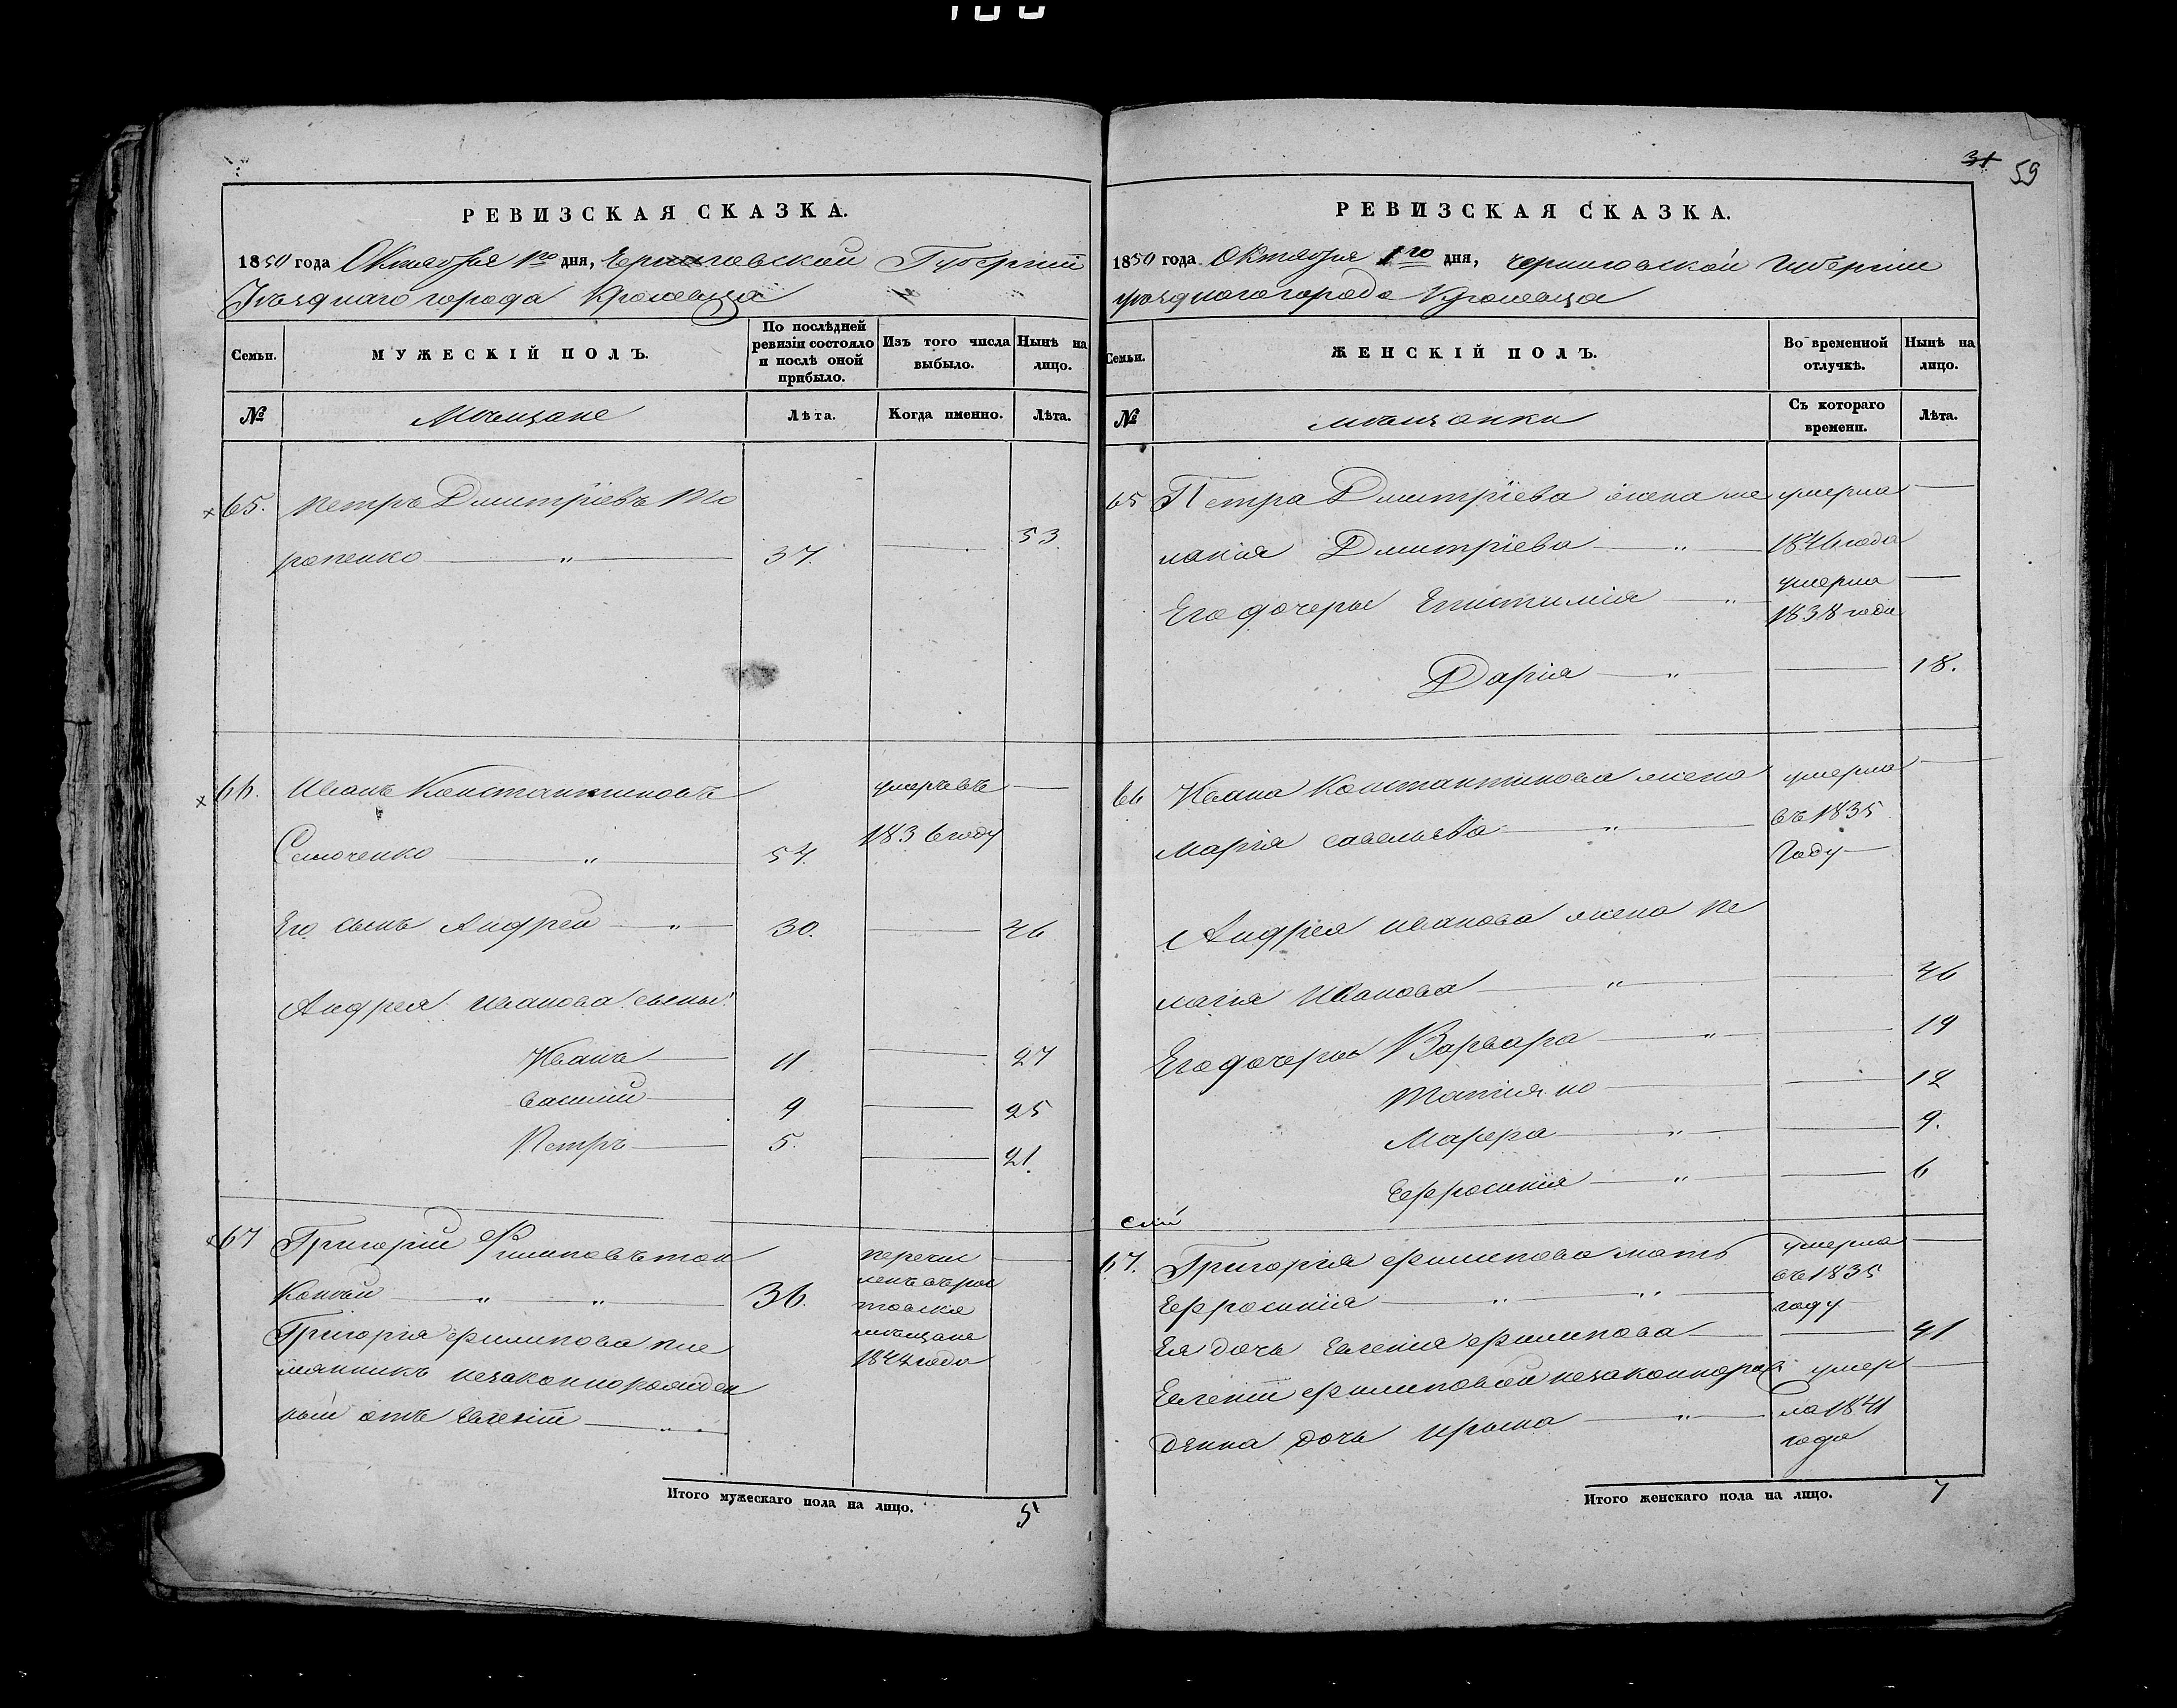 31 59
РЕВИЗСКАЯ СКАЗКА.
1850 года Октября 1го дня, Черниговской Губернии
Уѣзднаго города Кролевца
Семьи. МУЖЕСКІЙ ПОЛЪ. По послѣдней ревизіи состояло и послѣ оной прибыло. Изъ того числа выбыло. Нынѣ на лицо.
№ Мѣщане Лѣта. Когда именно. Лѣта.
65. Петръ Дмитріевъ То
ропенко — „ — 37. — 53
66. Иванъ Константиновъ умеръ въ —
Семоченко — „ — 54. 1836 году
Его сынъ Андрей — „ — 30. — 46
Андрея Иванова сыны:
Иванъ — 11 — 27
Василий — 9 — 25
Петръ — 5. — 21.
67 Григорий Филиповъ тон
кошый — „ — „ — 36. перечис
ленъ въ рос
товскіе
мѣщане
1844 года
Григорія Филипова пле
мянникъ незаконнорожден
ный отъ Евгеніи — „ —
Итого мужескаго пола на лицо. 5
РЕВИЗСКАЯ СКАЗКА.
1850 года Октября 1го дня, Черниговской Губерніи
уѣзднаго города Кролевца
Семьи. ЖЕНСКІЙ ПОЛЪ. Во временной отлучкѣ. Нынѣ на лицо.
№ мѣщанки Съ котораго времени. Лѣта.
65 Петра Дмитріева жена ме умерла —
ланія Дмитріева — „ — 1846 года
Его дочеры Епистимія — „ — умерла —
1838 года
Дарія — „ — — 18.
66 Ивана Константинова жена умерла —
Марія савельева — „ — въ 1835
Году —
Андрея иванова жена Пе
лагія Иванова — „ — — 46
Его дочеры Варвара — „ — — 19
Татіяна — — 12
Марфа — „ — — 9.
Ефросинія — „ — — 6
67. Григорія филипова мать умерла —
Ефросинія — „ — „ — въ 1835
году
Ея дочь Евгенія филипова — — 41
Евгеніи филиповой незаконнорож умер —
денна дочь Ирына — „ — ла 1841
года
Итого женскаго пола на лицо. 7